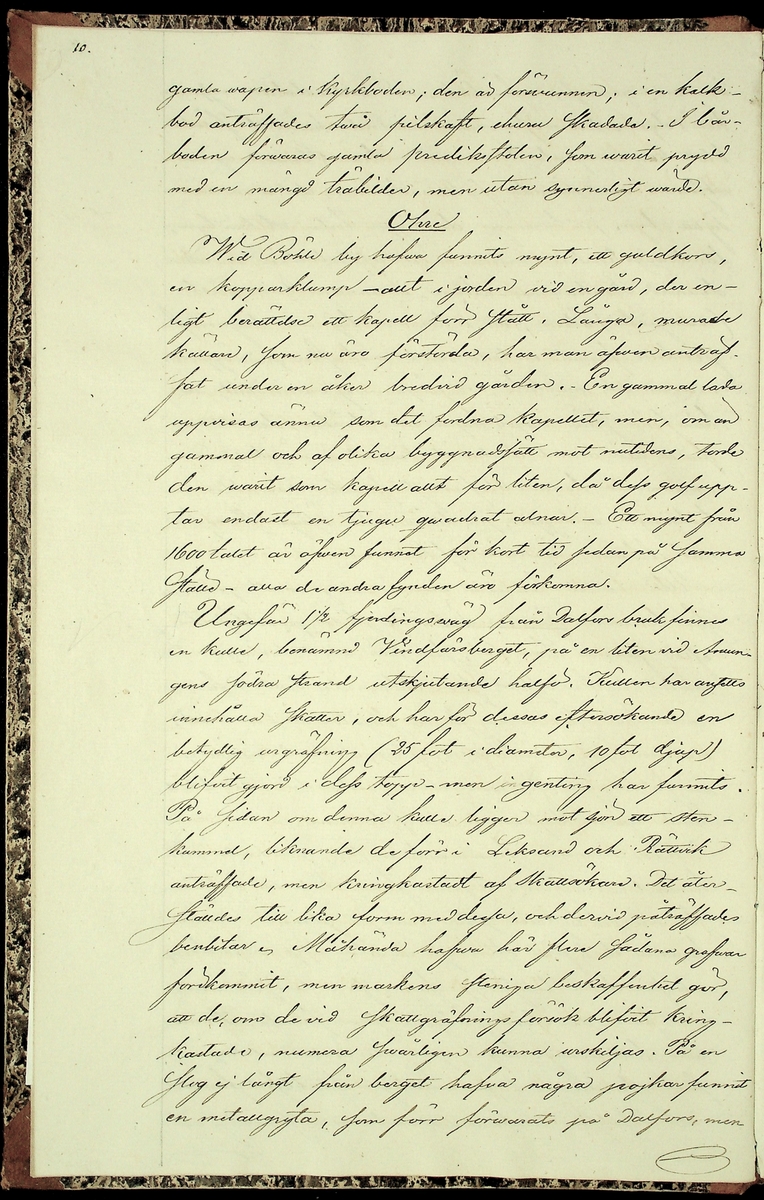 10.
gamla wapen i Kyrkboden; den är försvunnen; i en kalk-
bod anträffades twå pilskaft, ehuru skadade. - I bår-
boden förwaras gamla predikstolen, som warit prydd
med en mängd träbilder, men utan synnerligt wärde.
Ohre
Wid Böhle by hafva funnits mynt, ett guldkors,
en kopparklump - allt i jorden vid en gård, der en-
ligt berättelse ett kapell förr stått. Långa, murade
källare, som nu äro förstörda, har man äfwen anträf-
fat under en åker bredvid gården. - En gammal lada
uppvisas ännu som det fordna kapellet, men, om än
gammal och af olika byggnadssätt mot nutidens, torde
den warit som kapell allt för liten, då dess golf upp-
tar endast en tjugu qwadrat alnar. - Ett mynt från
1600 talet är äfwen funnet för kort tid sedan på samma
ställe - alla de andra fynden äro förkomna.
Ungefär 1 1/2 fjerdingswäg från Dalfors bruk finnes
en kulle, benämnd Vindfärsberget, på en liten vid Amun-
gens södra strand utskjutande halfö. Kullen har ansetts
innehålla skatter, och har för dessas eftersökande en
betydlig urgräfning (25 fot i diameter, 10 fot djup)
blifvit gjord i dess topp - men ingenting har funnits.
På sidan om denna kulle ligger mot sjön ett sten-
kummel, liknande de förr i Leksand och Rättvik
anträffade, men kringkastadt af Skattsökare. Det åter-
ställdes till lika form med dessa, och dervid påträffades
benbitar. Måhända hafva här flere sådana grafwar
förekommit, men markens steniga beskaffenhet gör,
att de, om de vid Skattgräfningsförsök blifvit kring-
kastade, numera swårligen kunna urskiljas. På en
slog ej långt från berget hafva några pojkar funnit
en metallgryta, som förr förwarats på Dalfors, men